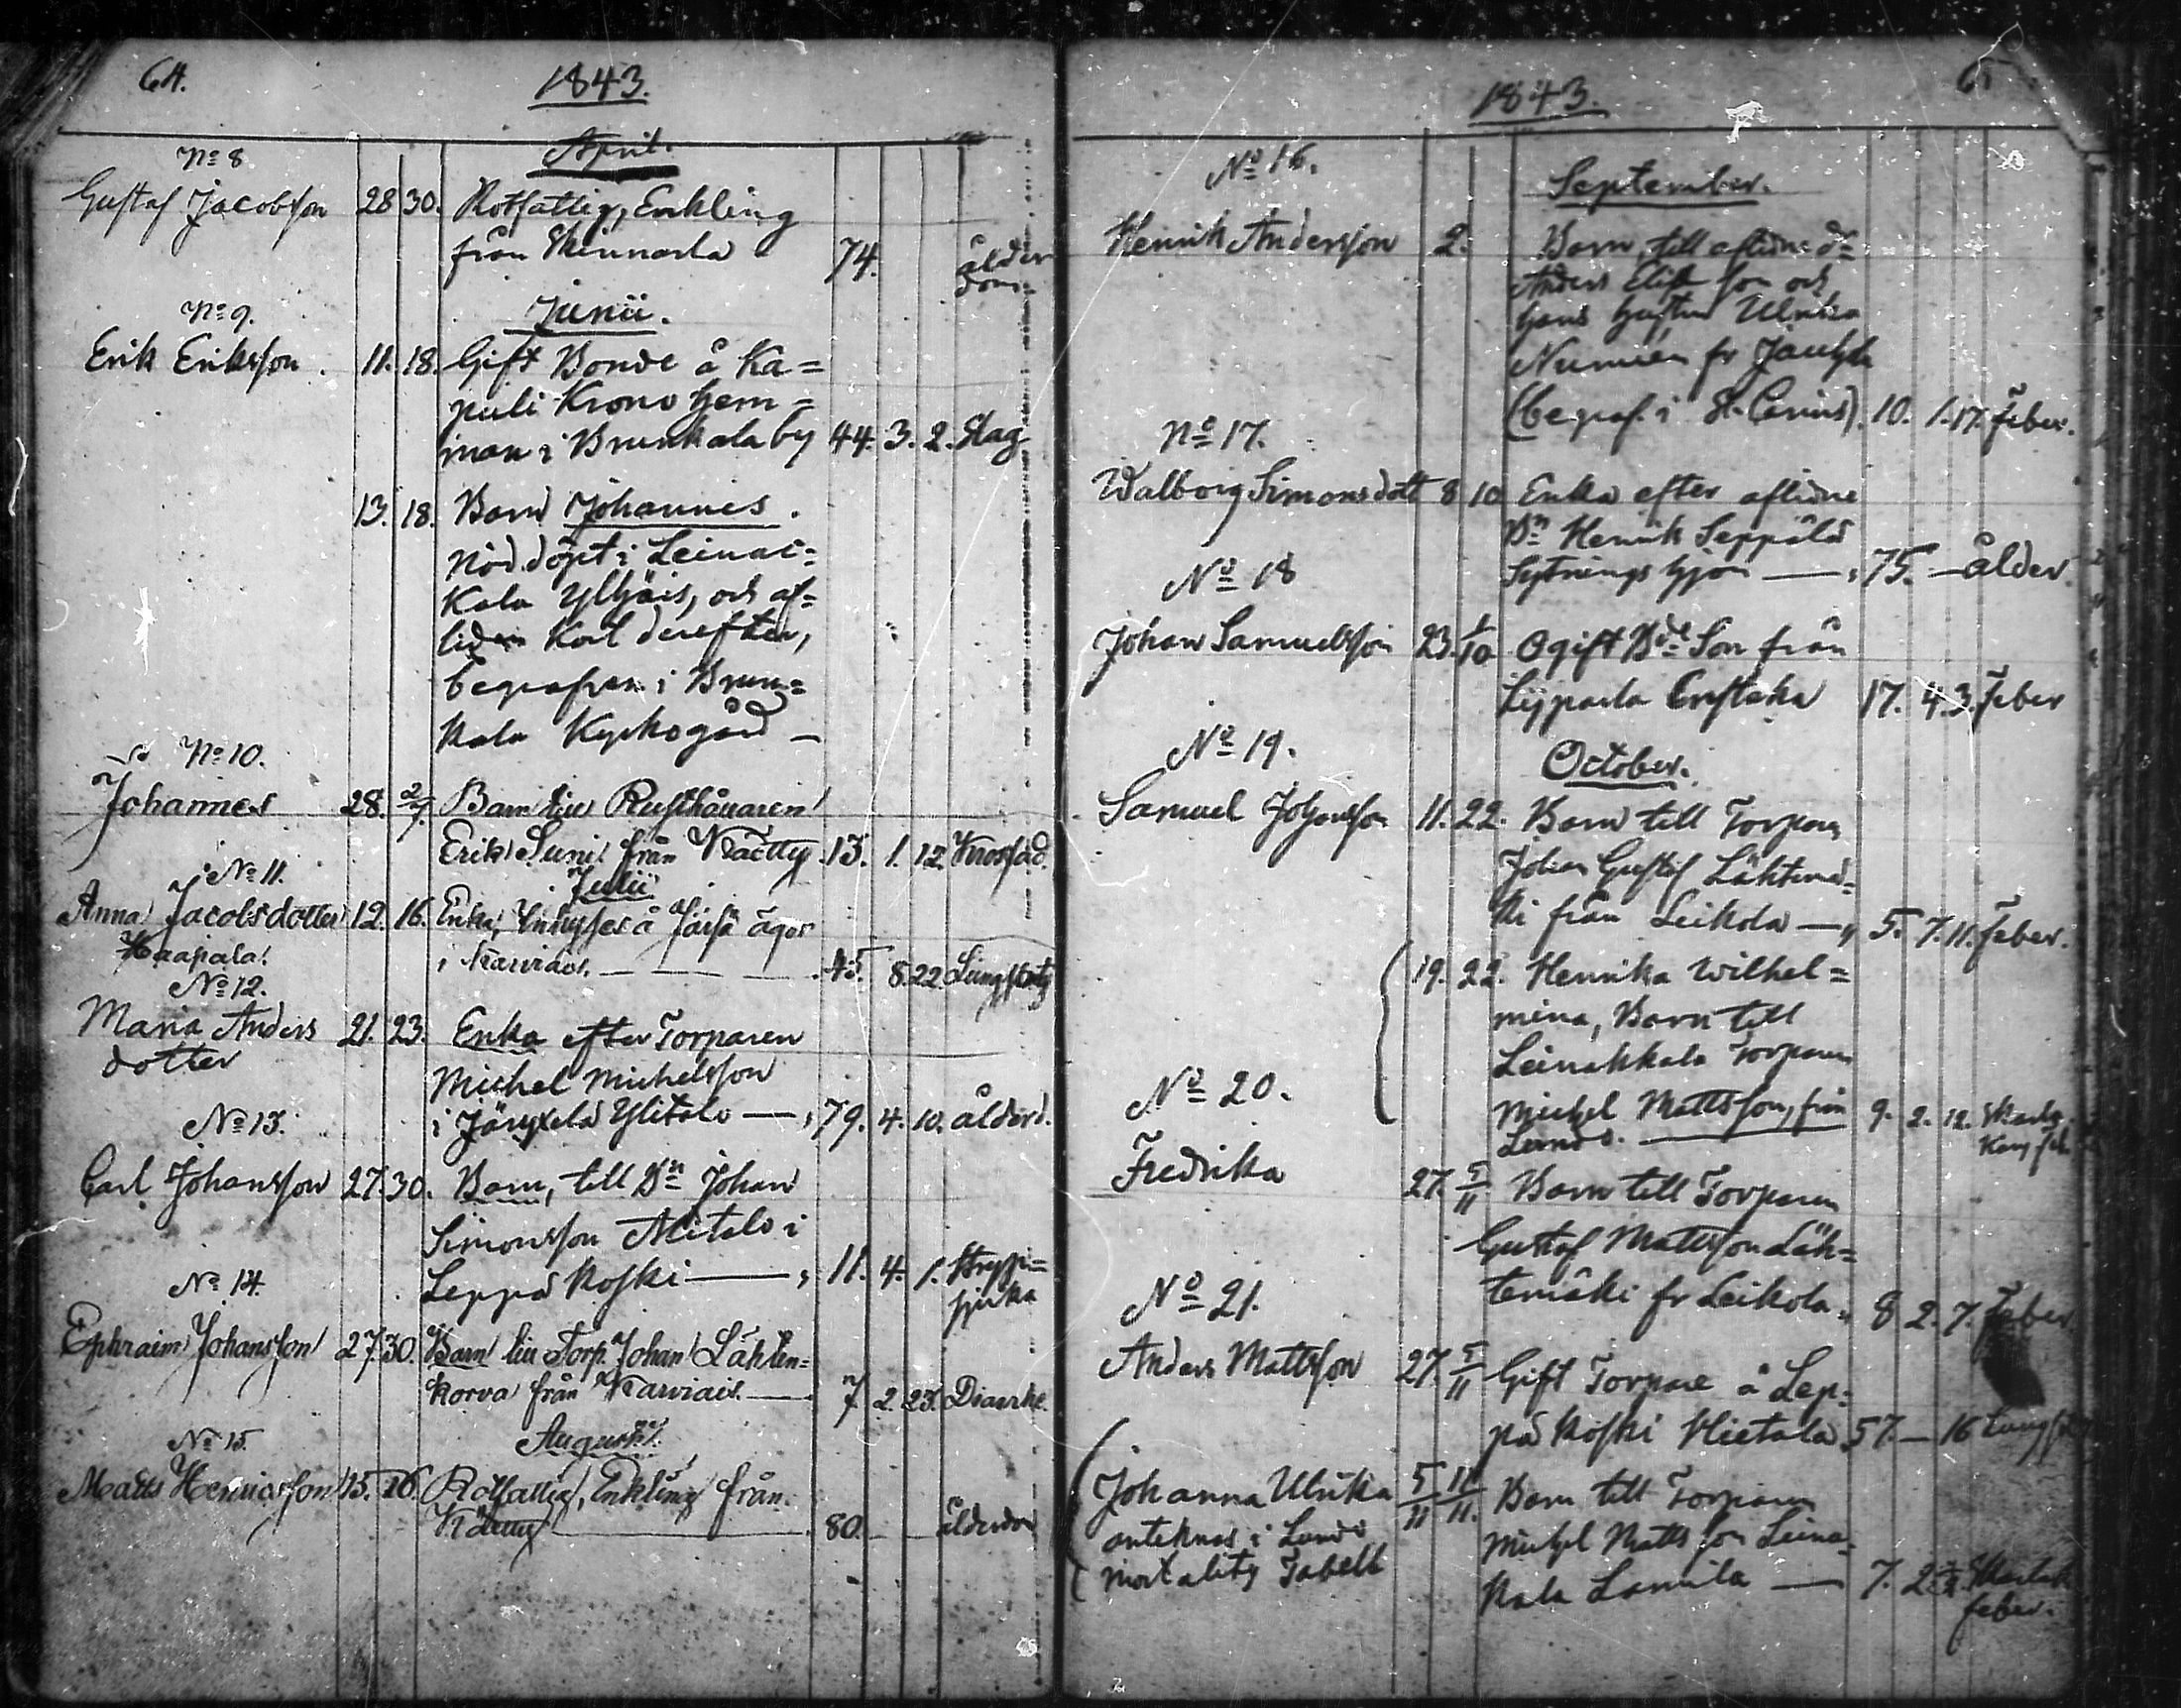 64.
1843.
April.
No 8
Gustaf Jacobsson 28 30. Rotfattig, Enkling
från Skinnarla 74. ålder
dom=
No 9. Junii.
Erik Eriksson. 11. 18. Gift Bonde å Ka=
puli Krono hem=
man i Brunkala by 44. 3. 2. Slag
13. 18. Barn Johannes.
nöddöpt i Leinac=
kala Yljäis, och af=
liden kort derefter,
begrafven i Brun=
kala Kyrkogård —
No 10.
Johannes 28. 2/7. Barn till Rusthållaren
Erik Suni från Nätty 13. 1. 12.
No 11. Julii
Anna Jacobsdotter 12. 16. Enka, Inhyses å ägor
Haapala. i Karviais. — 8 22 Lungsot
No 12.
Maria Anders 21. 23. Enka efter Torparen
dotter Michel Michelsson
i Järyxelä Ylitalo — 79. 4. 10. ålderd.
No 13.
Carl Johansson 27. 30. Barn, till Bn Johan
Simonsson Alitalo i
Leppäkoski — 11. 4. 1. Stryp=
sjuka
No 14.
Ephraim Johansson 27. 30. Barn till Torp. Johan Lähten=
korva från Karviais — 7 2 23. Diarrhe.
No 15. Augusti.
Matts Henricsson 15. 16. Rotfattig, Enkling från
80. — — ålderdom
1843. 65
No 16. September.
Henrik Andersson 2. Barn, till aflidne
Anders son och
hans hustru Ulrika
Numien fr
(begraf. i St. ) 10. 1. 17. Feber.
No 17.
Walborg Simonsdott 8 10 Enka efter aflidne
Bn Henrik Seppälä
Sytningshjon — 75. — ålder.
No 18
Johan Samuelsson 23. 1/10 Ogift Bde Son från
Lijparla Erstaka 17. 4. 3. Feber
No 19. October.
Samuel Johansson 11. 22. Barn till Torparen
Johan Gustaf Lähtemä=
ki från Leikola — 5. 7. 11. Feber.
19. 22. Henrika Wilhel=
mina, Barn till
Leinakkala Torparen
Michel Mattsson, från
Lundo. — 9. 2. 12. Skarla
No 20.
Fredrika 27. 5/11 Barn till Torparen
Gustaf Mattsson Läh=
temäki fr Leikola 8 2. 7. Feber
No 21.
Anders Mattsson 27. 5/11 Gift Torpare å Lep=
päkoski Hietala 57. — 16 Lungs
Johanna Ulrika 5/11 11/11. Barn till Torparen
anteknas i Lundo Michel Mattsson Leina=
mortalitz Tabell kala Lamila — 7. 2
feber.